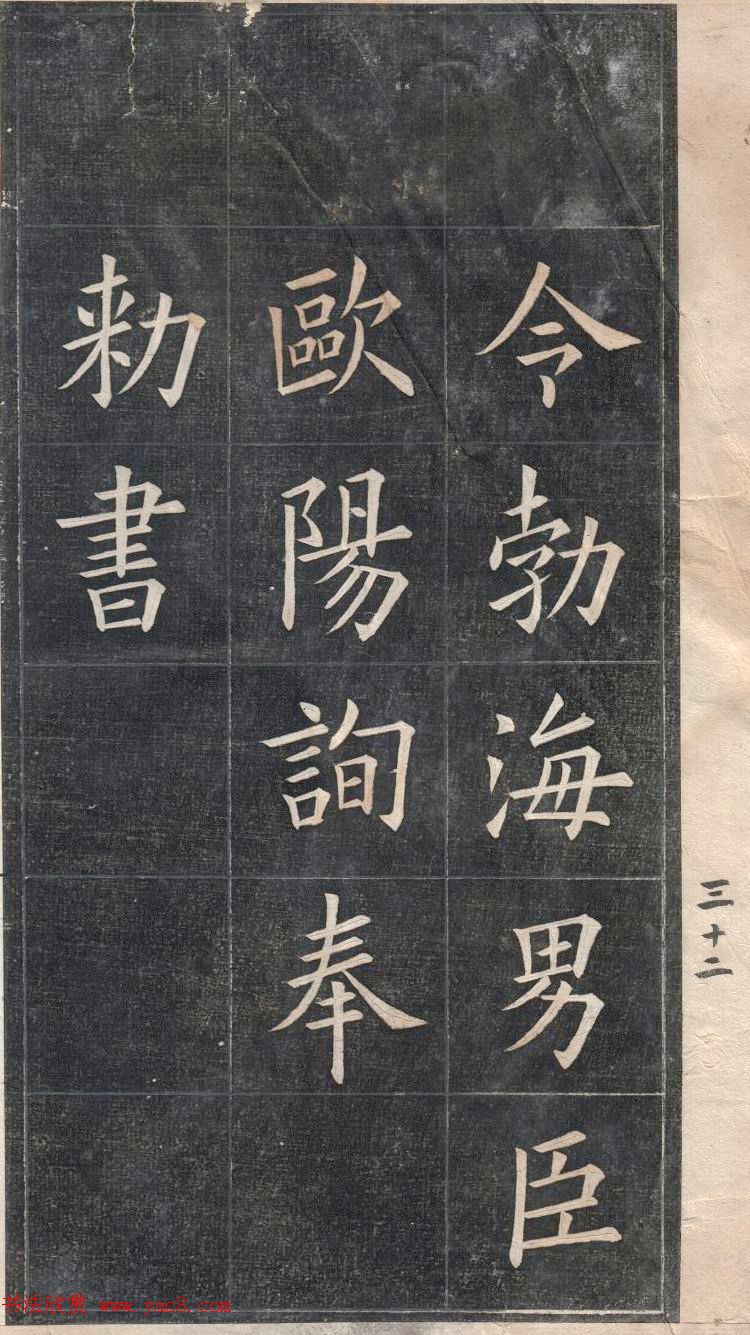 令勃海男臣
歐陽詢奉
勑書
三十二
书法欣赏 www.yac8.com